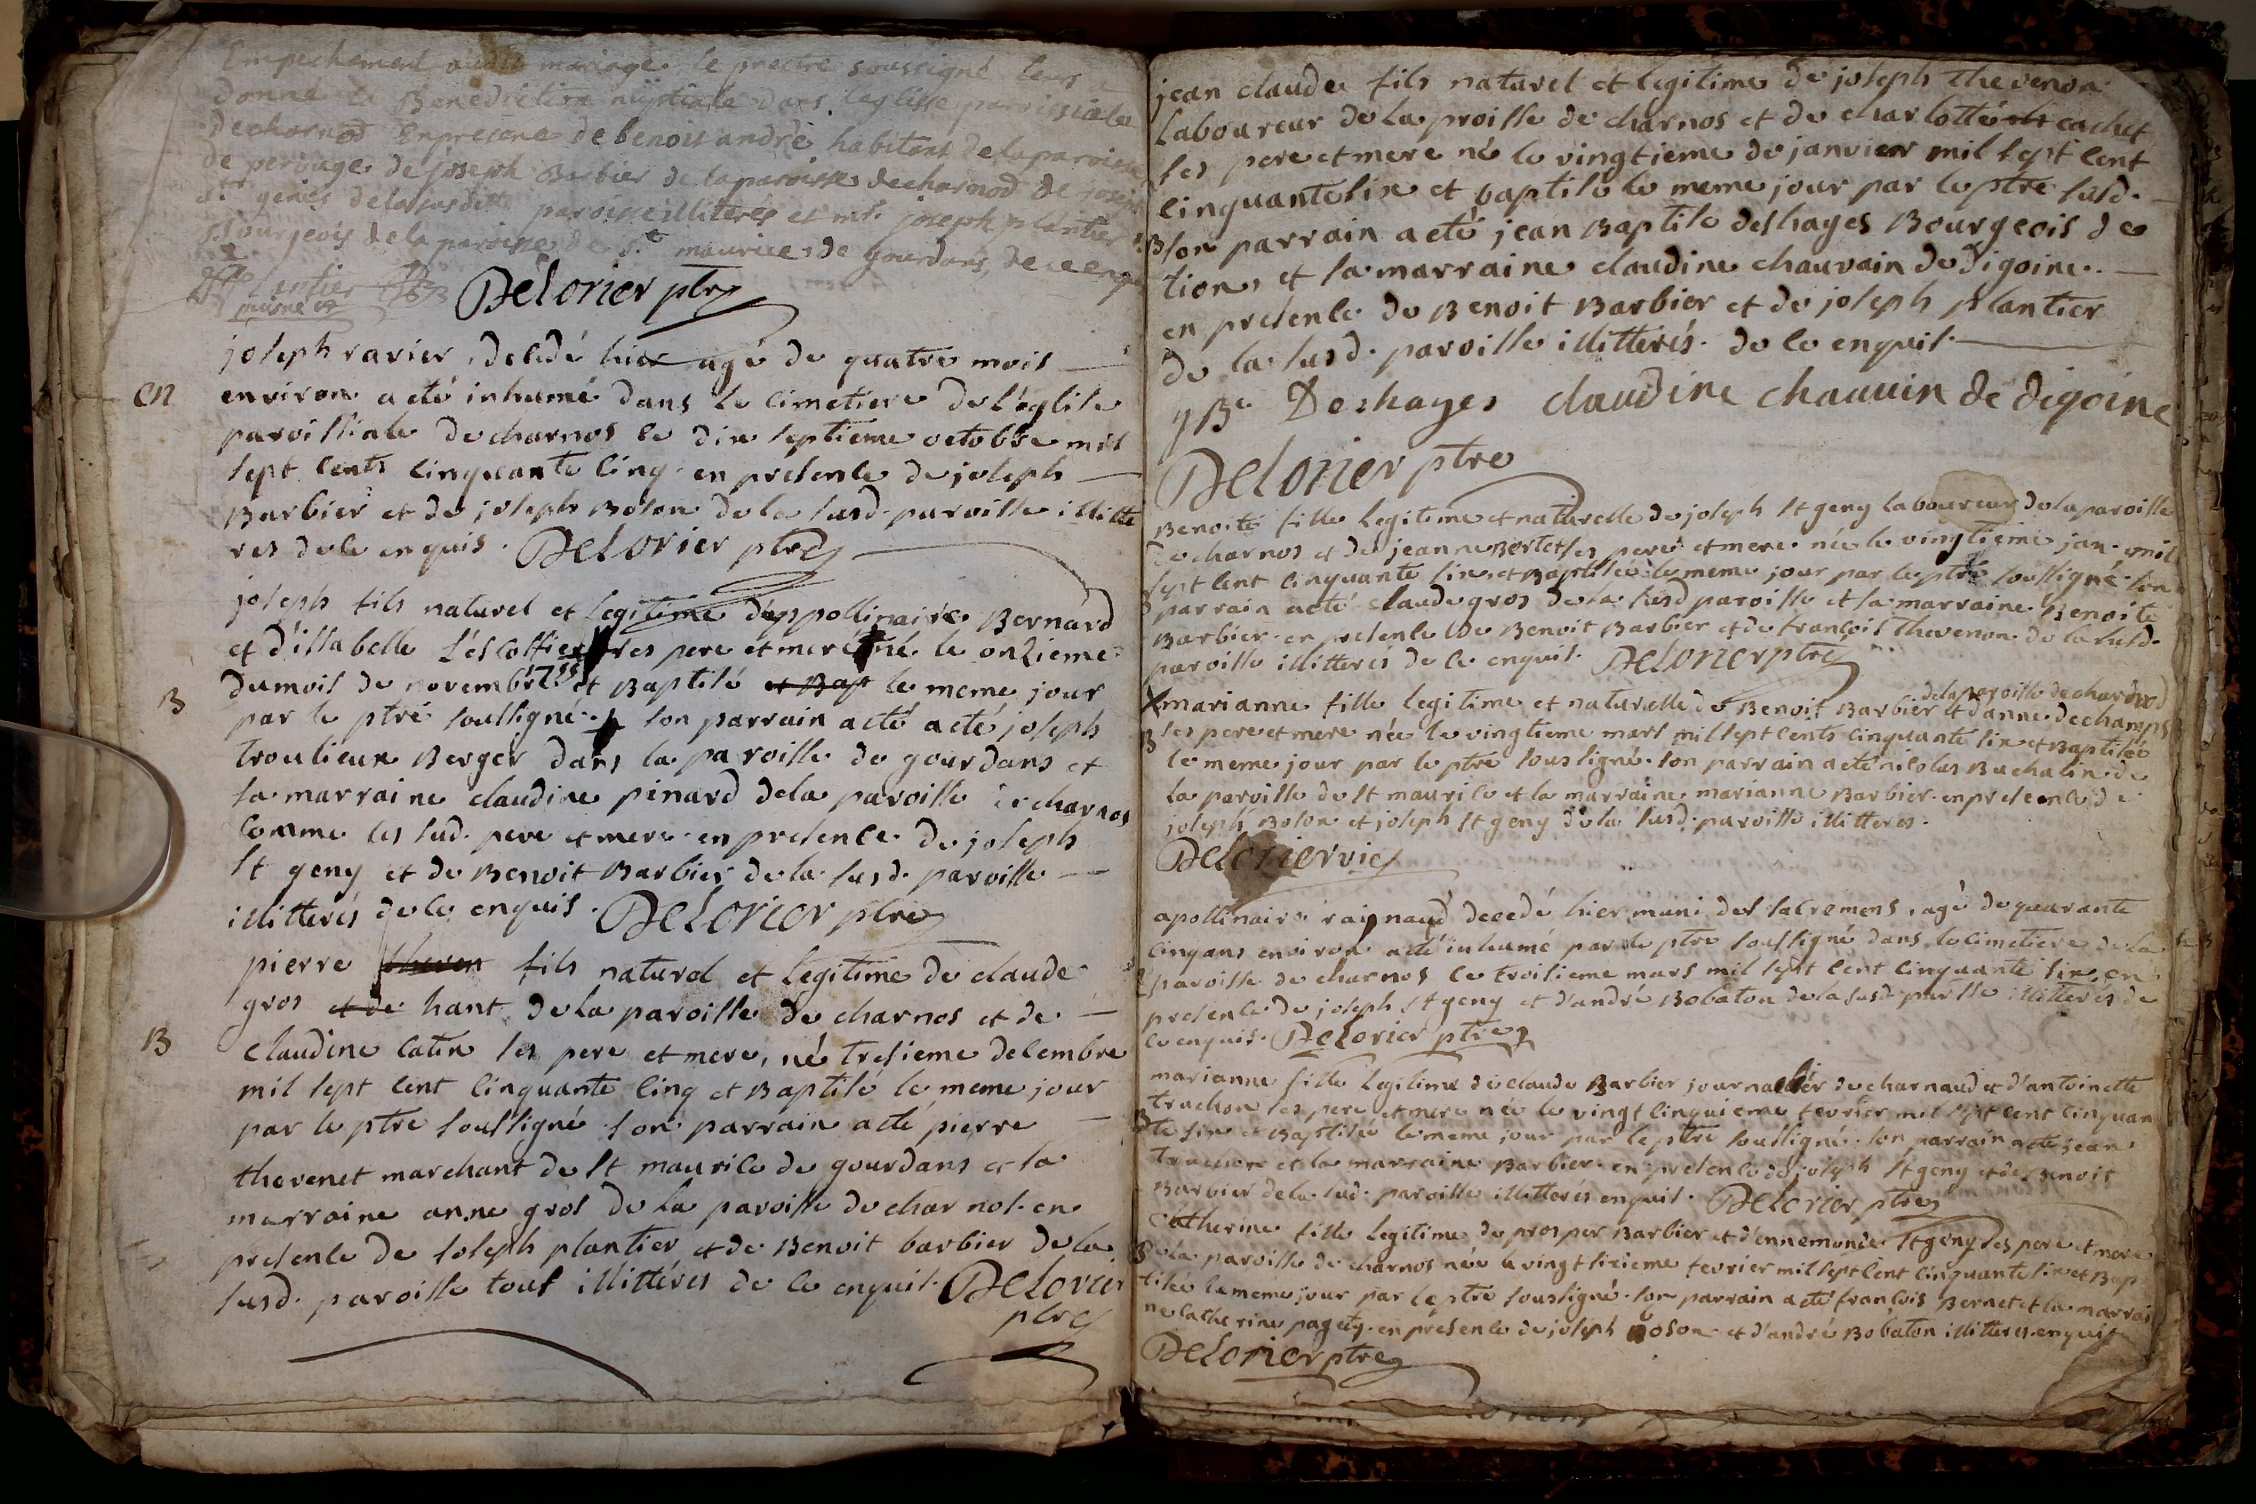 Empechement audit mariage le pretre soussigné leurs
donné la Benediction nuptiale dans leglisse parroissiale
decharnod En presence de benoit andré habitant de la paroisse
de perouge de joseph Barbier de la paroisse decharnod de joseph
st genies de la susditte paroisse illiteres et mr joseph plantier
Bourgeois de la paroisse de st maurice de gourdans, de ce enq
plantier
Delorier ptre
joseph ravier, decedé hier agé de quatre mois
en
environ a eté inhumé dans le cimetiere de l'eglise
paroissiale de charnos le dix septieme octobre mil
sept cents cinquante cinq en presence de joseph
Barbier et de joseph Boson de la susd. paroisse illitte
res de ce enquis. Delorier ptre
joseph fils naturel et legitime d'appollinaire Bernard
et d'issabelle l'escoffier ses pere et mere né le onzieme
B
du mois de novembre 1755 et Baptisé et Bap le meme jour
par le ptre soussigné. son parrain a eté a eté joseph
troulieux Berger dans la paroisse de gourdans et
sa marraine claudine pinard de la paroisse de charnos
comme les sud. pere et mere en presence de joseph
st geny et de Benoit Barbier de la susd. paroisse
illitterés de ce enquis. Delorier ptre
pierre theven fils naturel et legitime de claude
gros et de hant de la paroisse de charnos et de
B
claudine catin ses pere et mere, né tresieme decembre
mil sept cent cinquante cinq et Baptisé le meme jour
par le ptre soussigné son parrain a eté pierre
thevenet marchant de st maurice de gourdans et la
marraine anne gros de la paroisse de charnos en
presence de Joseph plantier et de Benoit barbier de la
susd. paroisse tous illittéres de ce enquis. Delorier
ptre
jean claude fils naturel et legitime de joseph thevenon
Laboureur de la proisse de charnos et de charlotte cachet
ses pere et mere né le vingtieme de janvier mil sept cent
cinquante six et baptisé le meme jour par le ptre susd.
B
son parrain a eté jean Baptiste deshayes Bourgeois de
lion, et la marraine claudine chauvain de digoine.
en presence de Benoit Barbier et de joseph plantier
de la susd. paroisse illitterés. de ce enquis.
jBe Deshayes claudine chauvin de digoine
Delorier ptre
Benoite fille legitime et naturelle de joseph st geny laboureur de la paroisse
de charnos et de jeanne Bertet ses pere et mere née le vingtieme jan. mil
sept cent cinquante six et Baptisée le meme jour par le ptre soussigné son
B
parrain a eté claude gros de la susd paroisse et la marraine Benoite
Barbier en presence de Benoit Barbier et de françois thevenon de la susd.
paroisse illitterés de ce enquis. Delorier ptre
de la paroisse de charnod
marianne fille legitime et naturelle de Benoit Barbier et d'anne dechamps
B
ses pere et mere née le vingtieme mars mil sept cents cinquante six et Baptisée
le meme jour par le ptre sousigné. son parrain a eté nicolas Buchalin de
la paroisse de st maurice et la marraine marianne Barbier en presence de
joseph Boson et joseph st geny de la susd. paroisse illitteres.
Delorier vic
apollinaire raignaud decedé hier muni des sacremens, agé de quarante
cinq ans environ a eté inhumé par le ptre soussigné dans le cimetiere de la
paroisse de charnos le troisieme mars mil sept cent cinquante six en
presence de joseph st geny et d'andré Bobaton de la susd. parsse illitterés de
ce enquis. Delorier ptre
marianne fille legitime de claude Barbier journalier de charnaud et d'antoinette
truchon ses pere et mere née le vingt cinquieme fevrier mil sept cent cinquan
B
te six et Baptisée le meme jour par le ptre soussigné. son parrain a eté jean
truchon et la marraine Barbier en presence de joseph st geny et de Benoit
Barbier de la sud. paroisse illitterés enquis. Delorier ptre
Catherine fille legitime de prosper Barbier et d'ennemonde st geny ses pere et mere
B
de la paroisse de charnos née le vingt sixieme fevrier mil sept cent cinquante six et Bap
tisée le meme jour par le ptre sousigné. son parrain a eté françois Bernet et la marrai
ne catherine pagety. en presence de joseph Boson et d'andré Bobaton illitteres enquis
Delorier ptre